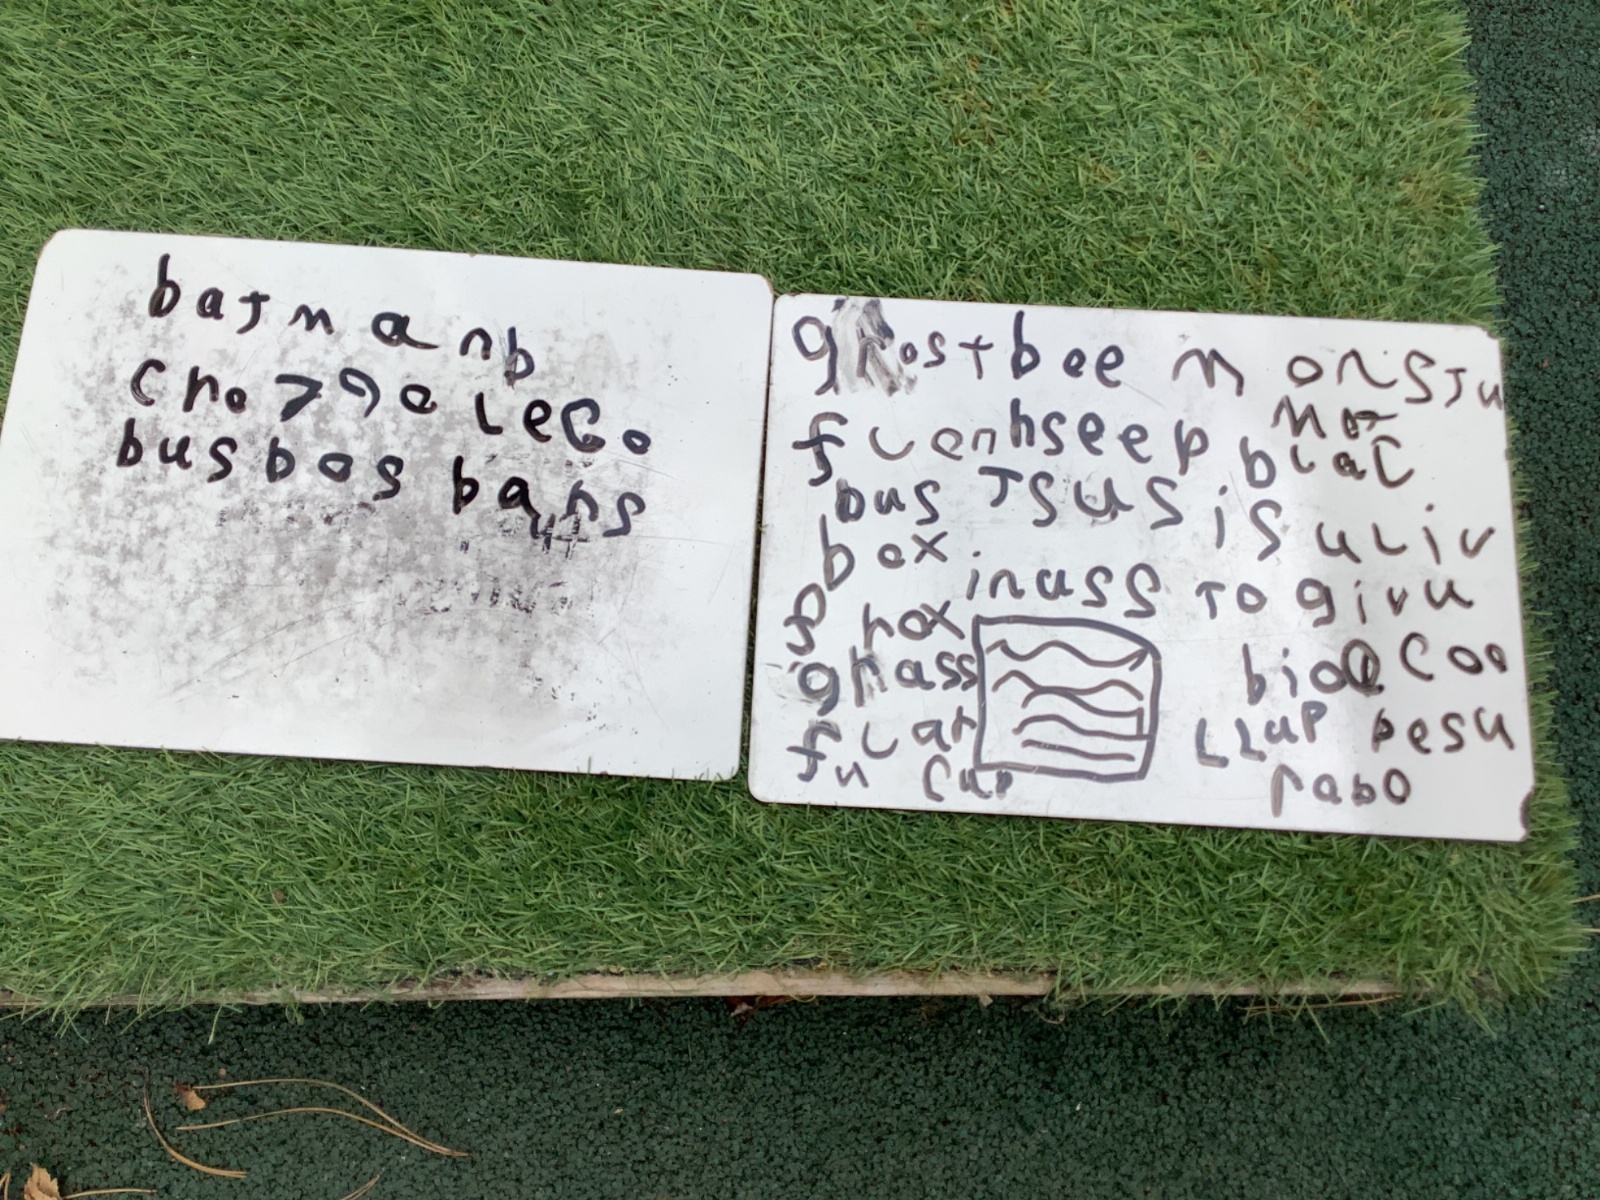 batmanb
cno
lego
bus bos bans
ghost bee monstu
flenhseep
Mor
blac
bus Jsus is uliv
box inuss to givu
hox
ghass
bio coo
fular
LLup besu
fu cup
rabo